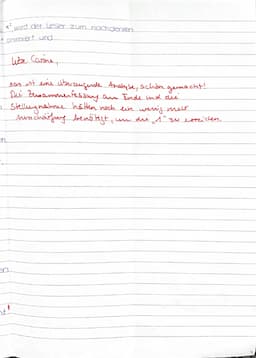 wird der Leser zum nachdenken
animiert und
liebe Carina,
das ist eine überzeugende Analyse, schön gemacht!
Die Zusammenfassung am Ende und die
Stellungnahme hätten noch ein wenig mehr
benötigt, um die „1“ zu erreichen.